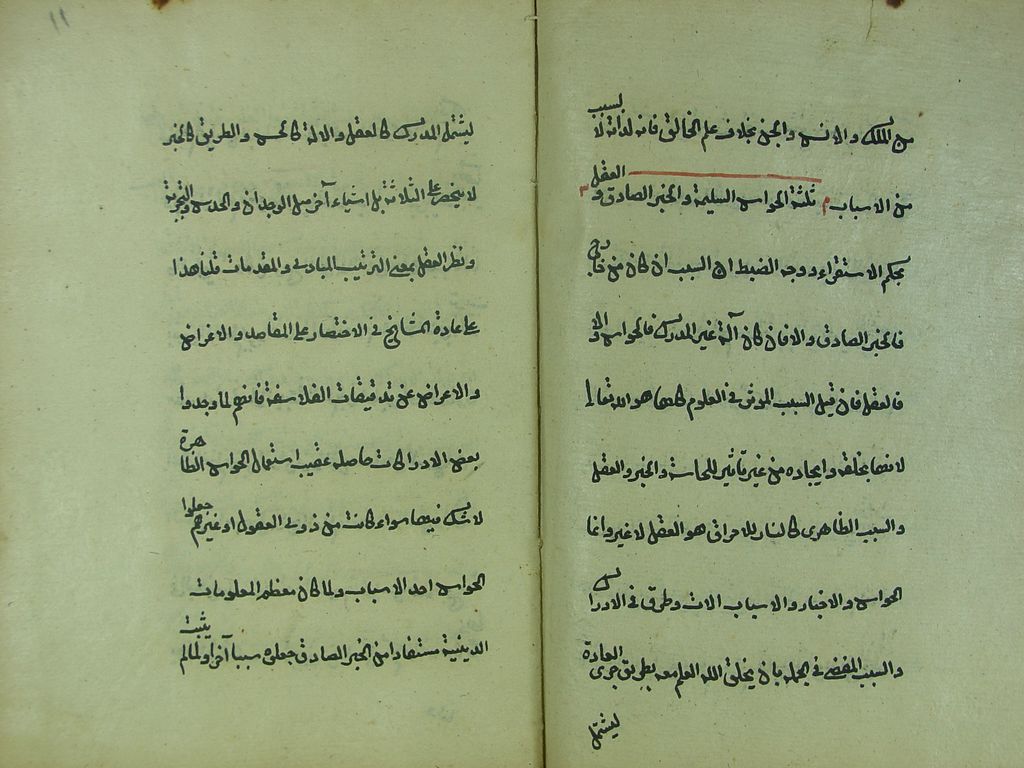 من الملك والانس والجن بخلاف علم الخالق فانه لذاته لا لسبب
من الاسباب ثلثة الحواس السليمة والخبر الصادق والعقل
بحكم الاستقراء ووجه الضبط ان السبب ان كان من خارج
فالخبر الصادق والا فان كان آلة غير المدرك فالحواس والا
فالعقل فان قيل السبب الموثر في العلوم كلها هو الله تعالى
لانها بخلقه وايجاده من غير تاثير للحاسة والخبر والعقل
والسبب الظاهرى كالنار للاحراق هو العقل لا غير وانما
الحواس والاخبار والاسباب الات وطرق في الادراك
والسبب المفضى في الجمله بان يخلق الله العلم معه بطريق جرى العادة
ليشتمل
١١
ليشتمل المدرك كالعقل والالة كالحس والطريق كالخبر
لا ينحصر على الثلاثة بل اشياء آخر مثل الوجدان والحدس والتجربة
ونظر العقل بمعنى الترتيب المبادى والمقدمات قلنا هذا
على عادة المشايخ في الاختصار على المقاصد والاغراض
والاعراض عن تدقيقات الفلاسفة فانهم لما وجدوا
بعض الادراكات حاصله عقيب استعمال الحواس الظاهرة
لا شك فيها سواء كانت من ذوى العقول او غيرهم جعلوا
الحواس احد الاسباب ولما كان معظم المعلومات
الدينية مستفادا من الخبر الصادق جعلوه سببا آخر ولما لم يثبت